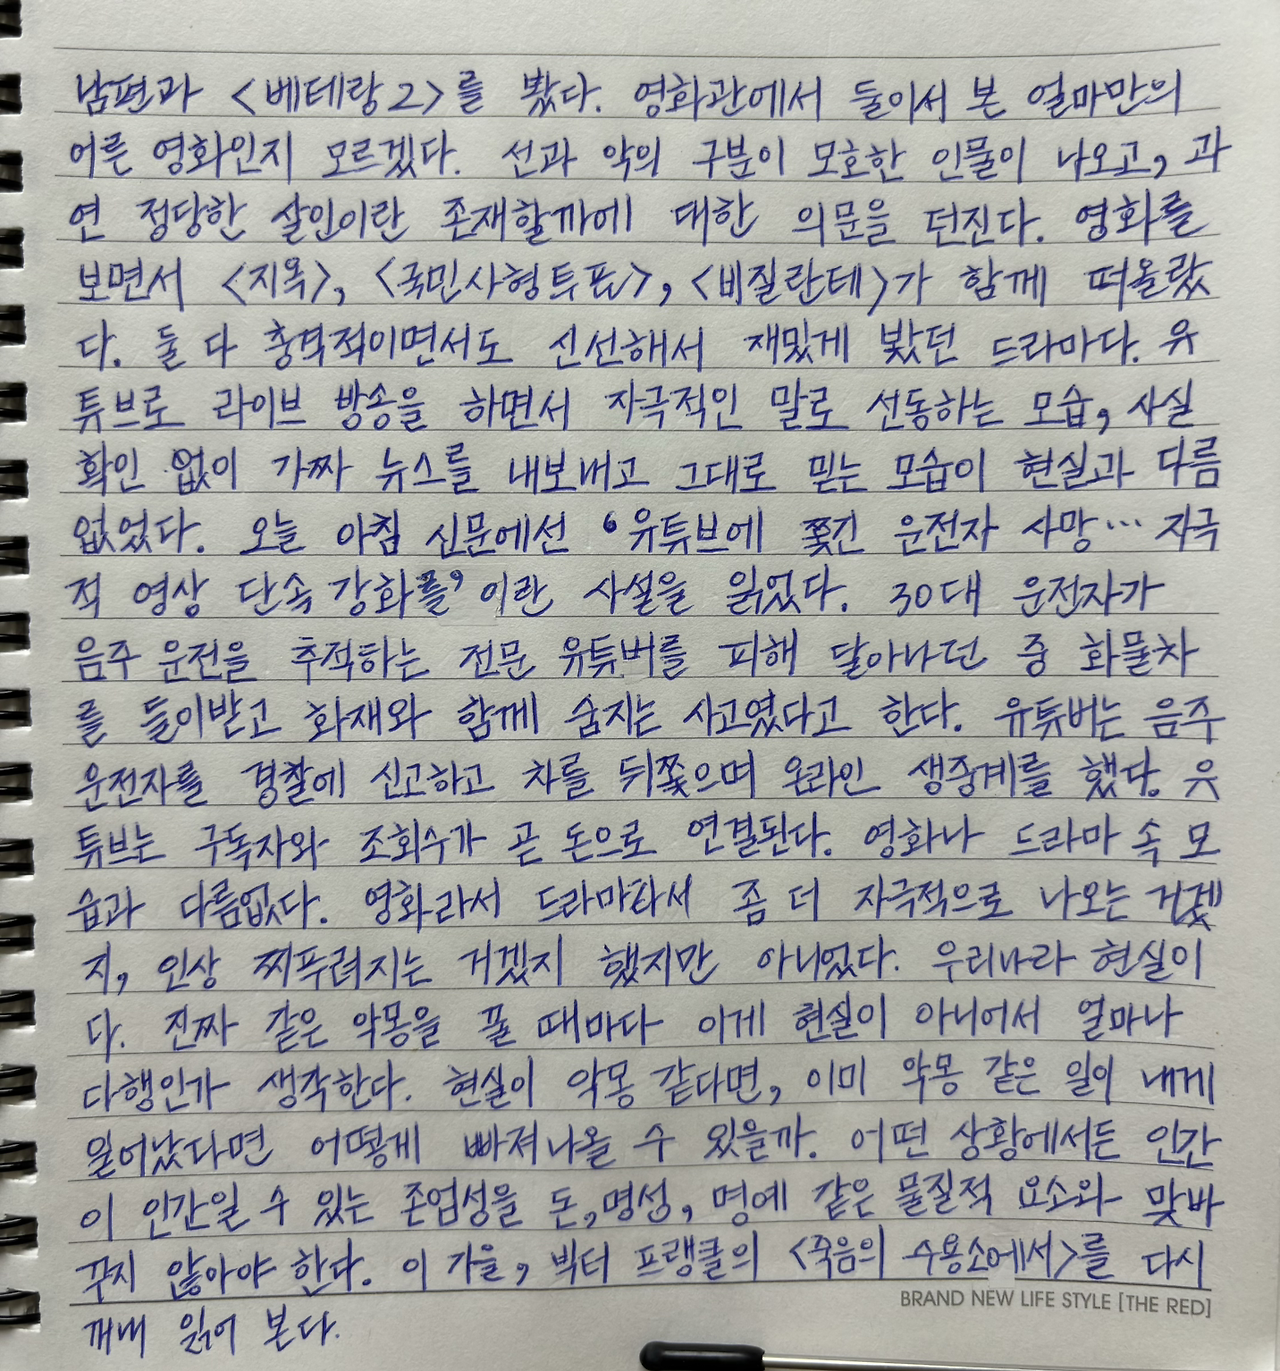 남편과 <베테랑2>를 봤다. 영화관에서 둘이서 본 얼마만의
어른 영화인지 모르겠다. 선과 악의 구분이 모호한 인물이 나오고, 과
연 정당한 살인이란 존재할까에 대한 의문을 던진다. 영화를
보면서 <지옥>, <국민사형투표>, <비질란테>가 함께 떠올랐
다. 둘 다 충격적이면서도 신선해서 재밌게 봤던 드라마다. 유
튜브로 라이브 방송을 하면서 자극적인 말로 선동하는 모습, 사실
확인 없이 가짜 뉴스를 내보내고 그대로 믿는 모습이 현실과 다름
없었다. 오늘 아침 신문에선 '유튜브에 쫓긴 운전자 사망… 자극
적 영상 단속 강화를' 이란 사설을 읽었다. 30대 운전자가
음주 운전을 추적하는 전문 유튜버를 피해 달아나던 중 화물차
를 들이받고 화재와 함께 숨지는 사고였다고 한다. 유튜버는 음주
운전자를 경찰에 신고하고 차를 뒤쫓으며 온라인 생중계를 했다. 유
튜브는 구독자와 조회수가 곧 돈으로 연결된다. 영화나 드라마 속 모
습과 다름없다. 영화라서 드라마라서 좀 더 자극적으로 나오는 거겠
지, 인상 찌푸려지는 거겠지 했지만 아니었다. 우리나라 현실이
다. 진짜 같은 악몽을 꿀 때마다 이게 현실이 아니어서 얼마나
다행인가 생각한다. 현실이 악몽 같다면, 이미 악몽 같은 일이 내게
일어났다면 어떻게 빠져나올 수 있을까. 어떤 상황에서든 인간
이 인간일 수 있는 존엄성을 돈, 명성, 명예 같은 물질적 요소와 맞바
꾸지 않아야 한다. 이 가을, 빅터 프랭클의 <죽음의 수용소에서>를 다시
꺼내 읽어 본다.
BRAND NEW LIFE STYLE [THE RED]